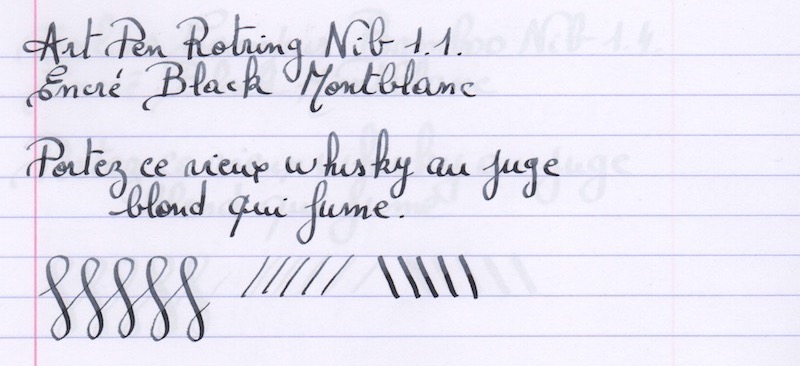 Art Pen Rotring Nib 1.1.
Encré Black Montblanc
Portez ce vieux whisky au juge
blond qui fume.